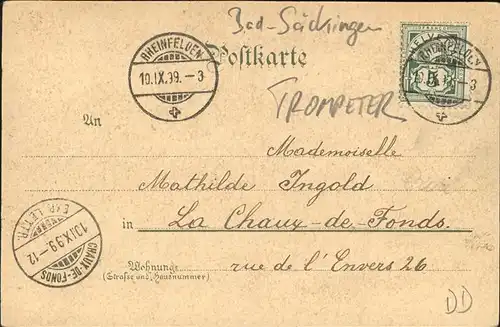 Bad-Säckingen
Postkarte
RHEINFELDEN
10.IX.99.-3
HELVETIA
RHEINFELDEN
5
-3
TROMPETER
An
Mademoiselle
Mathilde Ingold
in La Chaux-de-Fonds.
Wohnung
(Straße und Hausnummer)
rue de l'Envers 26
EXP. LETTR.
10.IX.99.-12
CHAUX-DE-FONDS
DD